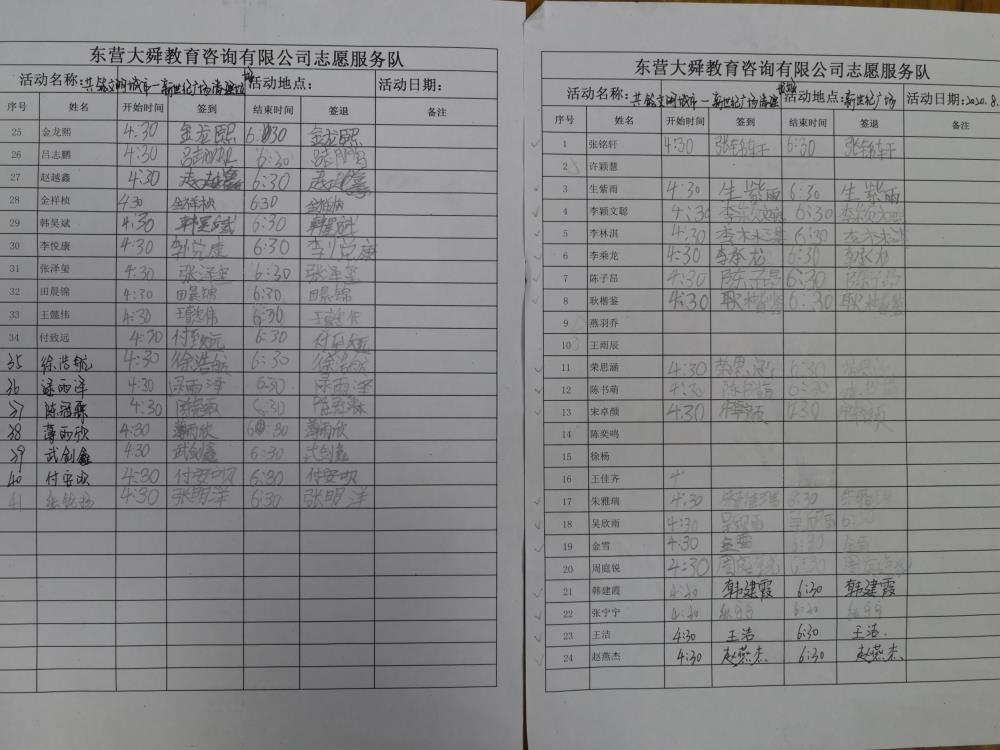 东营大舜教育咨询有限公司志愿服务队
活动名称:共铭文明城市一新世纪广场清 活动地点: 活动日期:
序号 姓名 开始时间 签到 结束时间 签退 备注
25 金龙熙 4:30 金龙熙 6:30 金龙熙
26 吕志鹏 4:30 6:30
27 赵越鑫 4:30 赵越鑫 6:30
28 金样桢 4:30 金样桢 6:30 金样桢
29 韩吴斌 4:30 韩吴斌 6:30 韩吴斌
30 李悦康 4:30 李悦康 6:30 李悦康
31 张泽玺 4:30 张泽玺 6:30 张泽玺
32 田晨锦 4:30 田晨锦 6:30 田晨锦
33 王懿伟 4:30 王懿伟 6:30 王懿伟
34 付致远 4:30 付致远 6:30 付致远
35 徐浩航 4:30 徐浩航 6:30 徐浩航
36 雨泽 4:30 雨泽 6:30 雨泽
37 陈冠霖 4:30 6:30
38 薄雨欣 4:30 薄雨欣 6:30 薄雨欣
39 武剑鑫 4:30 武剑鑫 6:30 武剑鑫
40 付安 4:30 付安 6:30 付安
41 4:30 张明洋 6:30 张明洋
东营大舜教育咨询有限公司志愿服务队
活动名称:共铭文明城市一新世纪广场清 活动地点:新世纪广场 活动日期:2020.8.
序号 姓名 开始时间 签到 结束时间 签退 备注
1 张铭轩 4:30 张铭轩 6:30 张铭轩
2 许颖慧
3 生紫雨 4:30 生紫雨 6:30 生紫雨
4 李颖文聪 4:30 李颖文聪 6:30 李颖文聪
5 李林淇 4:30 李林淇 6:30 李林淇
6 李乘龙 4:30 李乘龙 6:30 李乘龙
7 陈子昂 4:30 陈子昂 6:30 陈子昂
8 耿楷鉴 4:30 耿楷鉴 6:30 耿楷鉴
9 燕羽乔
10 王雨辰
11 荣思涵 4:30 荣思涵 6:30 荣思涵
12 陈书萌 4:30 陈书萌 6:30 陈书萌
13 宋卓颜 4:30 6:30
14 陈奕鸣
15 徐杨
16 王佳齐 4
17 朱雅瑞 4:30 6:30 朱雅瑞
18 吴欣雨 4:30 吴欣雨 吴欣雨 6:30
19 金雪 4:30 金雪 6:30 金雪
20 周庭锐 4:30 周庭锐 6:30 周庭锐
21 韩建霞 4:30 韩建霞 6:30 韩建霞
22 张宁宁 4:30 张宁宁 6:30 张宁宁
23 王洁 4:30 王洁 6:30 王洁.
24 赵燕杰 4:30 赵燕杰 6:30 赵燕杰